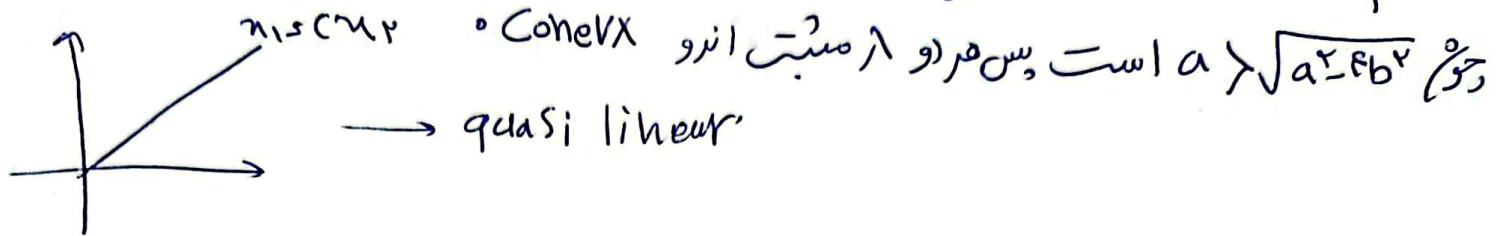 چون a > √(a۲-۴b۲) است پس هر دو λ مثبت اند و Conevx.
x۱ = c x۲
→ quasi linear